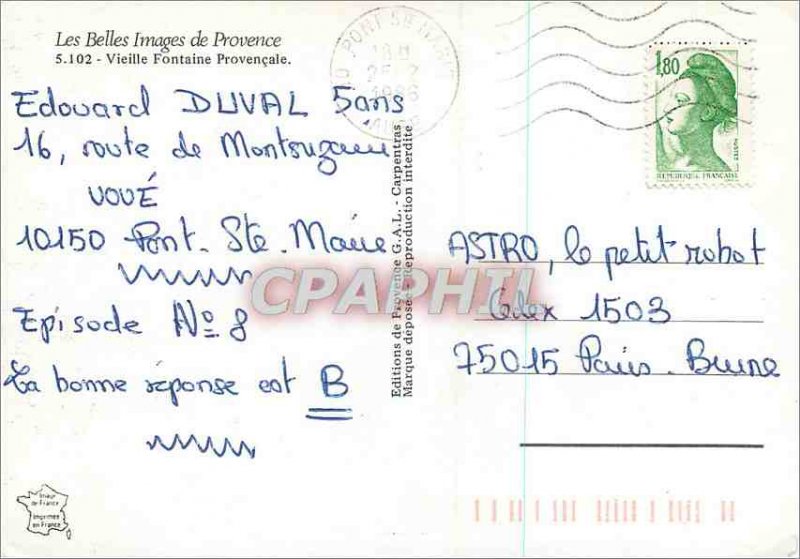 Les Belles Images de Provence
5.102 - Vieille Fontaine Provençale.
Edouard DUVAL 5ans
16, route de Montsuzain
VOUÉ
10150 Pont. Ste. Marie
Episode No 8
La bonne réponse est B
Editions de Provence G.A.L. - Carpentras
Marque déposée - Reproduction interdite
10 PONT STE MARIE
18 H
1986
AUBE
1,80
POSTES
REPUBLIQUE FRANÇAISE
ASTRO, le petit robot
Cdex 1503
75015 Paris. Brune
CPAPHIL
de France
Imprimée
en France